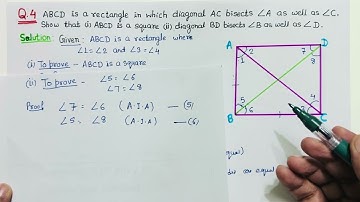 Q.4 ABCD is a rectangle in which diagonal AC bisects ∠A as well as ∠C.
Show that (i) ABCD is a square (ii) diagonal BD bisects ∠B as well as ∠D.
Solution: Given: ABCD is a rectangle where
∠1 = ∠2 and ∠3 = ∠4
(i) To prove - ABCD is a square
(ii) To prove - ∠5 = ∠6
∠7 = ∠8
Proof ∠7 = ∠6 (A.I.A) — (5)
∠5 = ∠8 (A.I.A) — (6)
A 2 7 D
1 8
5 4
6
B C
equal)
are equal